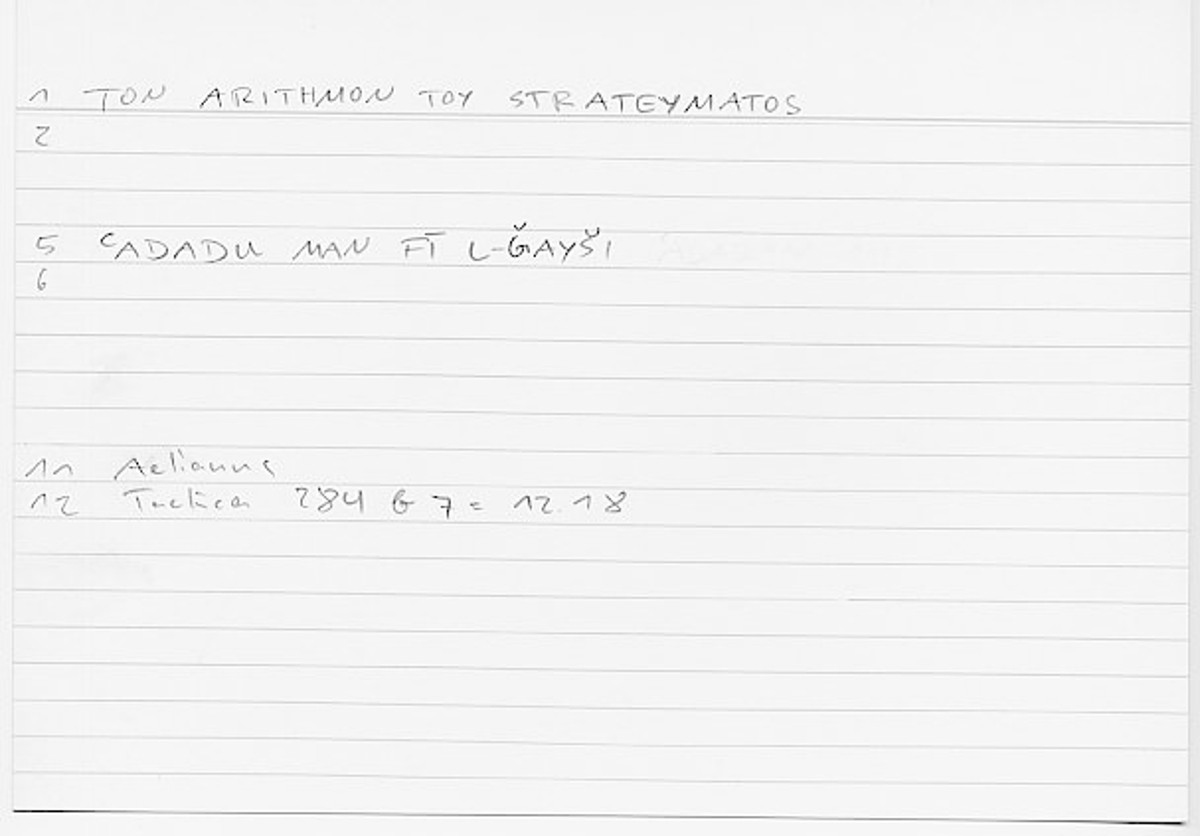 1 TON ARITHMON TOY STRATEYMATOS
2
5 ʿADADU MAN FĪ L-ǦAYŠI
6
11 Aelianus
12 Tactica 284 G 7 = 12.18